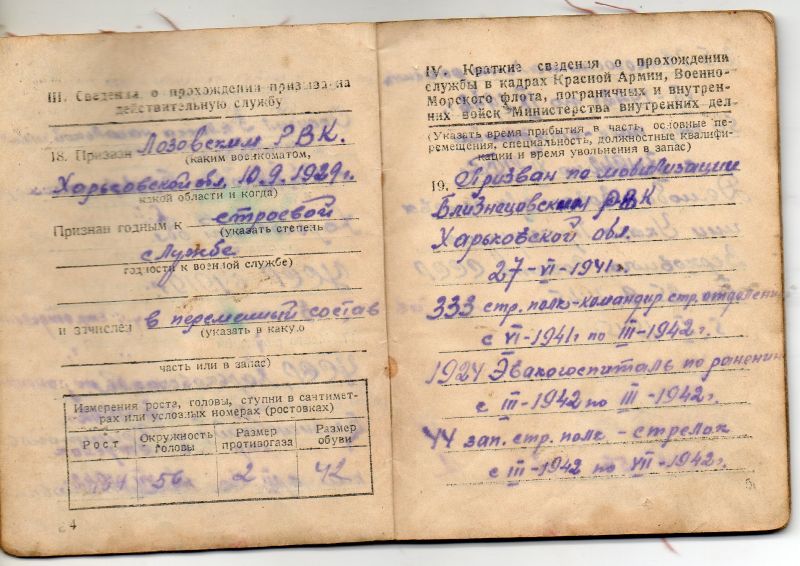 III. Сведения о прохождении призыва на
действительную службу
18. Призван Лозовским РВК.
(каким военкоматом,
Харьковской обл, 10.9.1929 г.
какой области и когда)
Признан годным к строевой
(указать степень
службе
годности к военной службе)
и зачислен в переменный состав
(указать в какую
часть или в запас)
Измерения роста, головы, ступни в сантимет-
рах или условных номерах (ростовках)
Рост Окружность головы Размер противогаза Размер обуви
56 2 42
4
IV. Краткие сведения о прохождении
службы в кадрах Красной Армии, Военно-
Морского флота, пограничных и внутрен-
них войск Министерства внутренних дел
(Указать время прибытия в часть, основные пе-
ремещения, специальность, должностные квалифи-
кации и время увольнения в запас)
19. Призван по мобилизации
Близнецовским РВК
Харьковской обл.
27-VI-1941 г.
333 стр. полк-командир стр. отделения
с VI-1941 г по III-1942 г.
1924 Эвакогоспиталь по ранению
с III-1942 по III-1942 г.
44 зап. стр. полк - стрелок
с III-1942 по VII-1942 г.
5